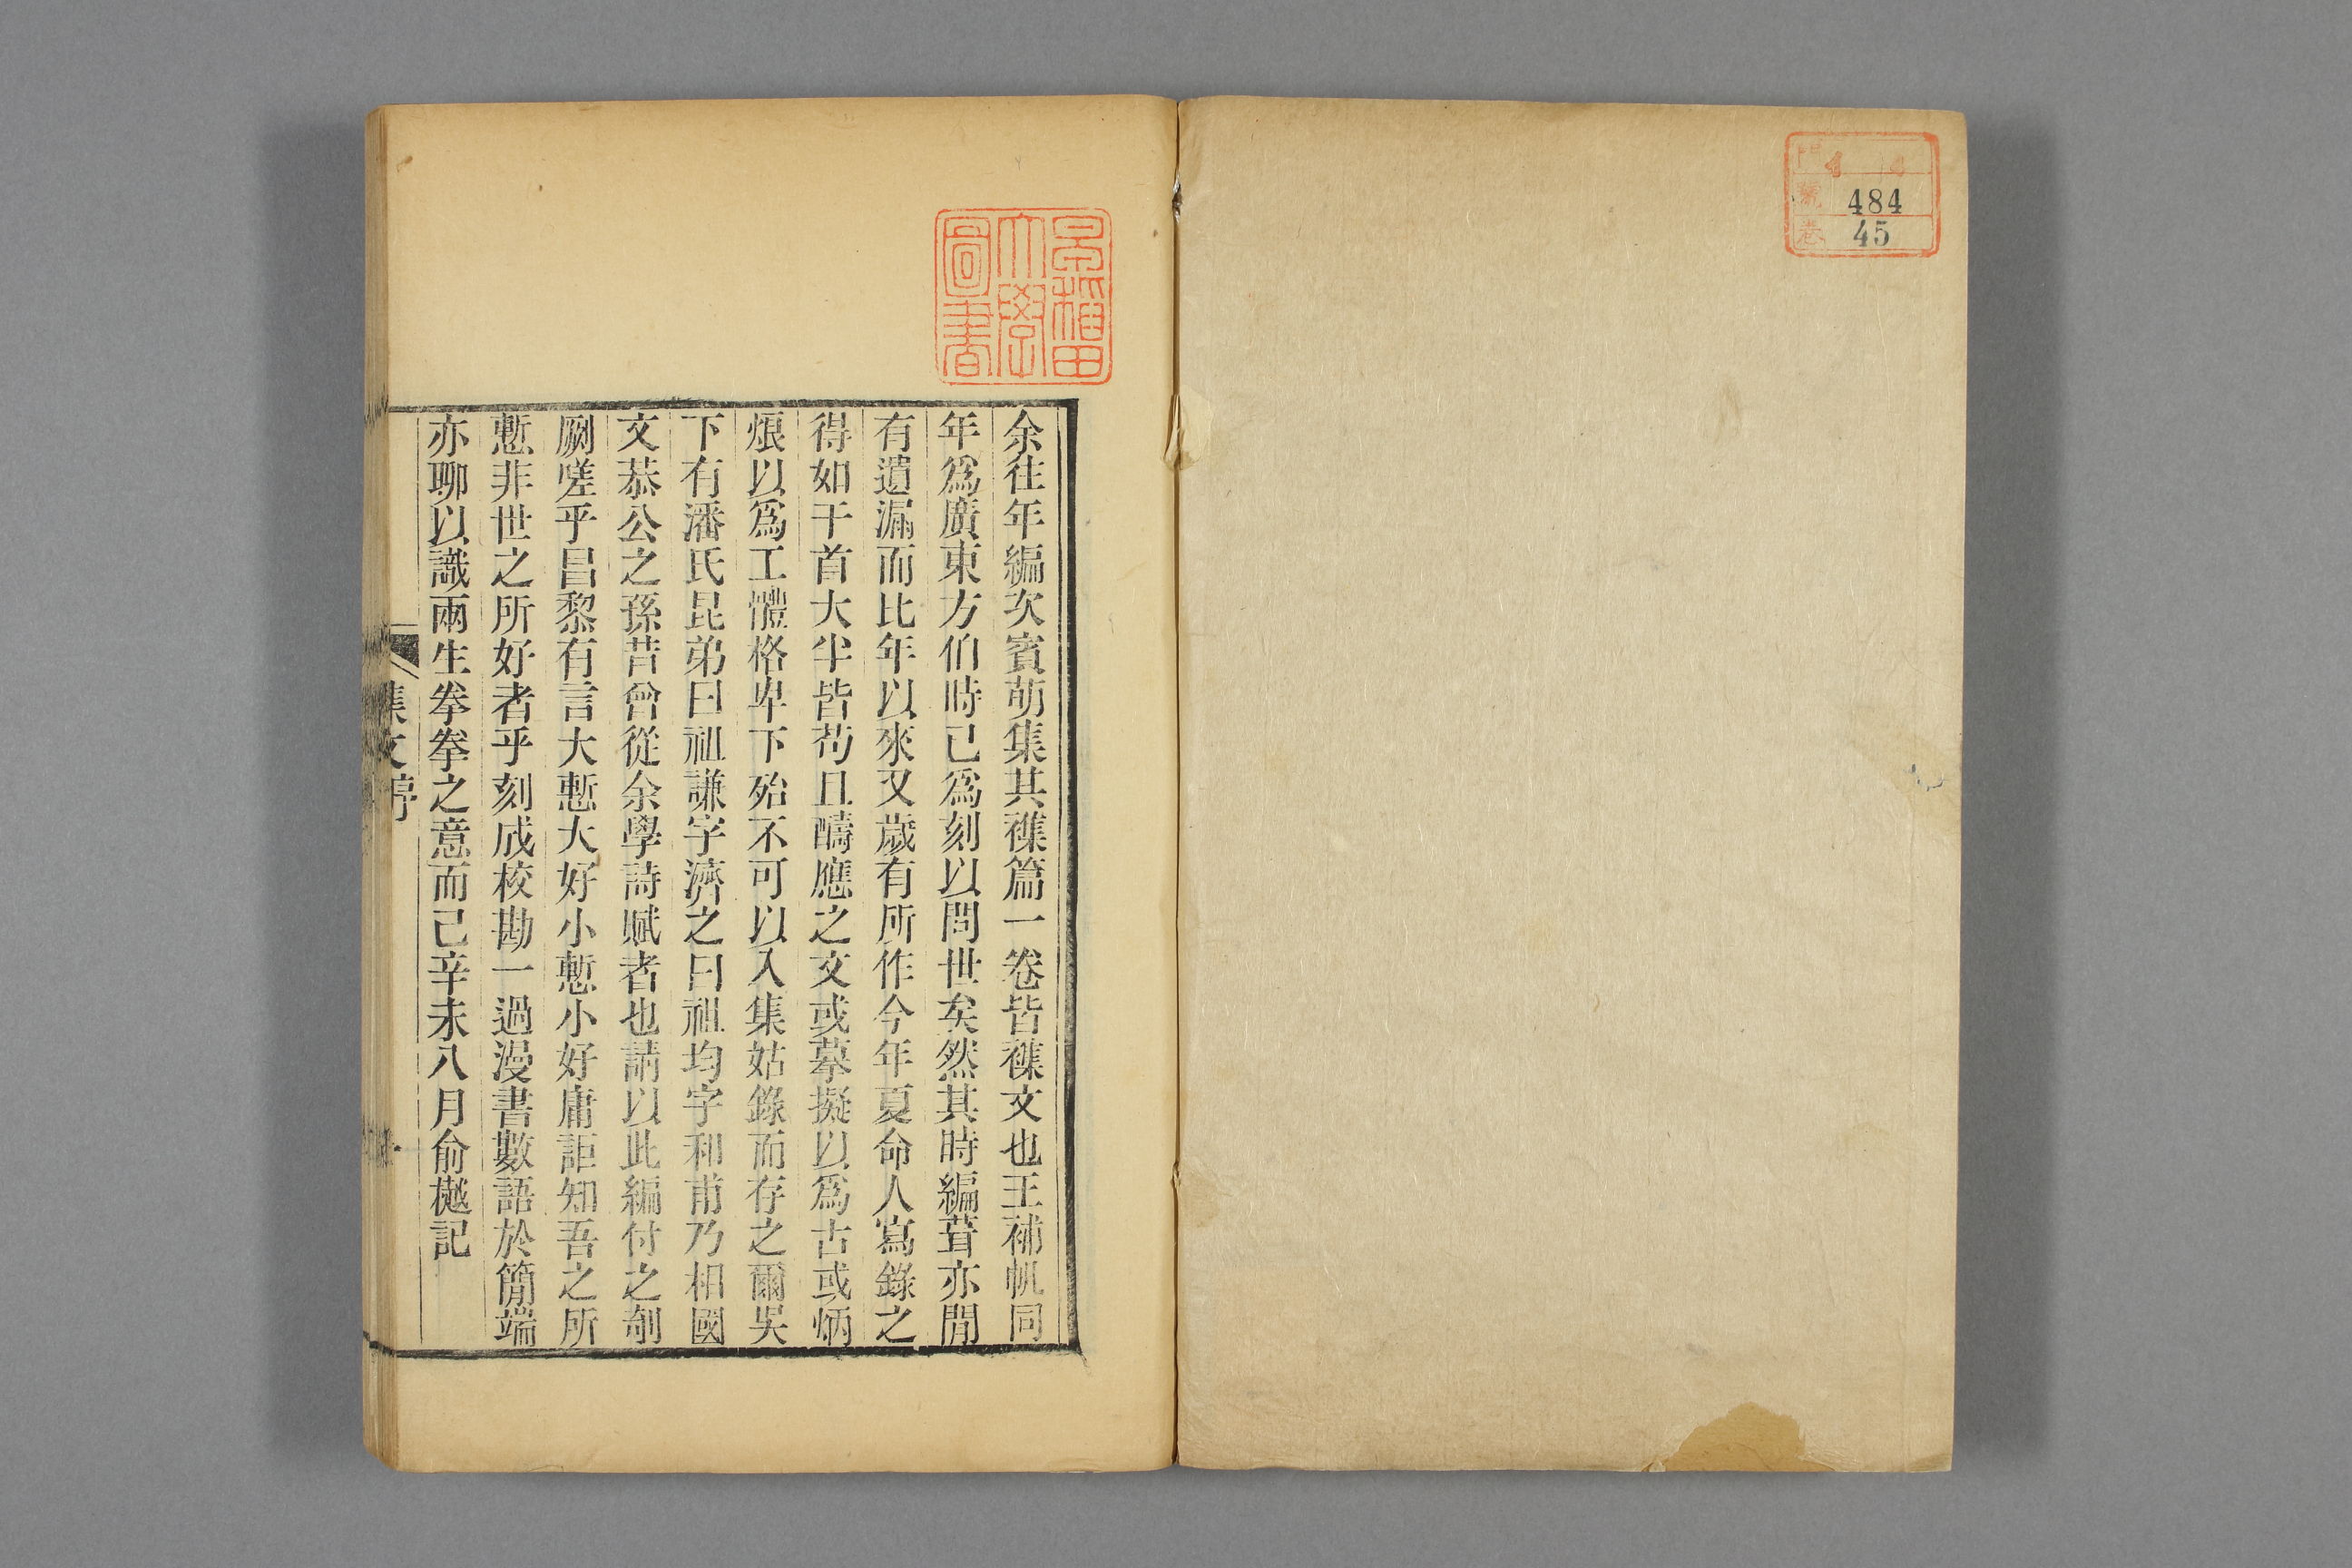 門 4
號 484
卷 45
早稲田
大學
圖書
余往年編次賓萌集其襍篇一卷皆襍文也王補帆同
年爲廣東方伯時已爲刻以問世矣然其時編葺亦閒
有遺漏而比年以來又歲有所作今年夏命人寫錄之
得如干首大半皆苟且酬應之文或摹擬以爲古或炳
烺以爲工體格卑下殆不可以入集姑錄而存之爾吳
下有潘氏昆弟曰祖謙字濟之曰祖均字和甫乃相國
文恭公之孫昔曾從余學詩賦者也請以此編付之剞
劂嗟乎昌黎有言大慙大好小慙小好庸詎知吾之所
慙非世之所好者乎刻成校勘一過漫書數語於簡端
亦聊以識兩生拳拳之意而已辛未八月俞樾記
集文序